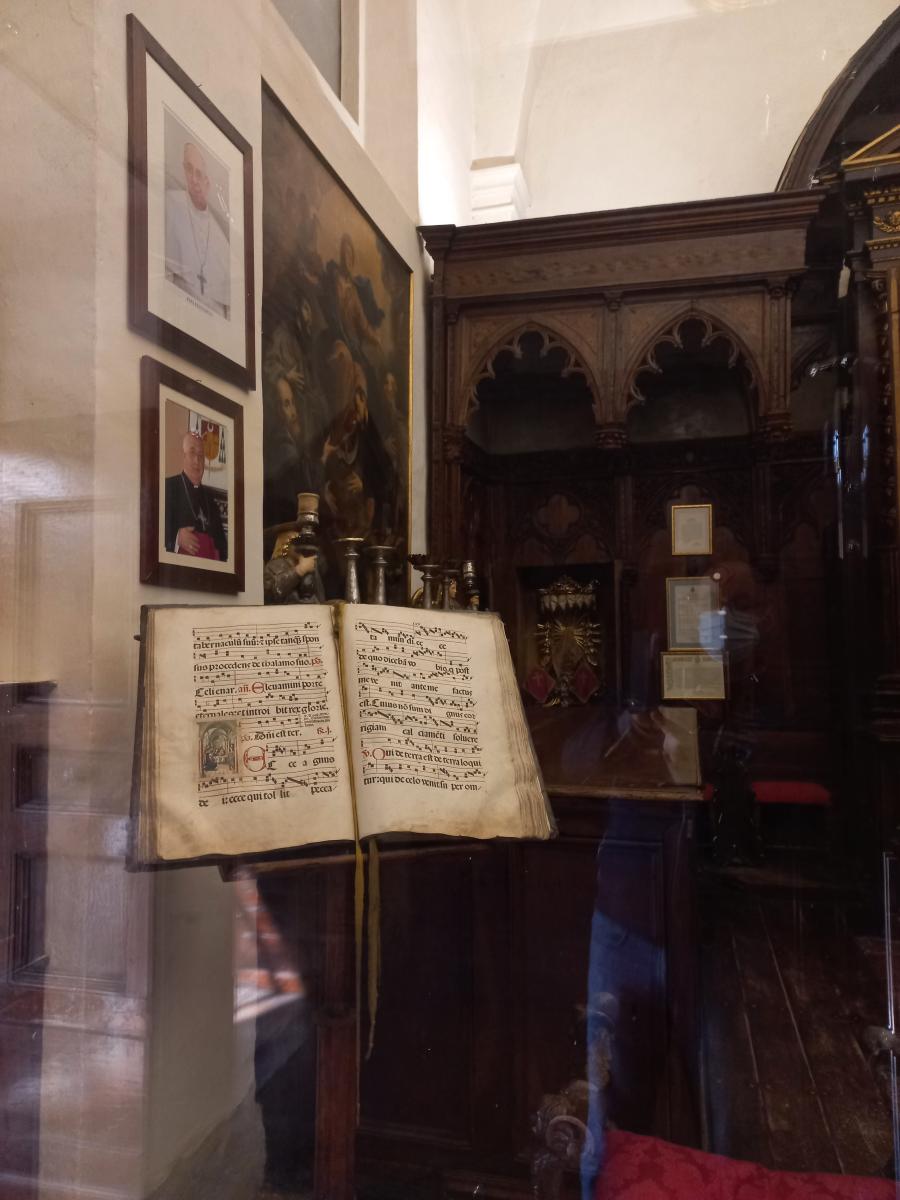 tabernaculū suū: et ipse tanqȝ spon
sus procedens de thalamo suo. ps.
Celi enar. añ. Eleuamini porte
eternales et introi bit rex glorie.
ps. Dñi est ter.
E c ce a gnus
de i: ecce qui tol lit pecca
ta mun di. ec ce
de quo diceba vo bis. q post
me ve nit ante me factus
est. Cuius nō sum di gnus cor
rigiam cal ciamēti soluere
Qui de terra est de terra loqui
tur: qui de celo venit su per om